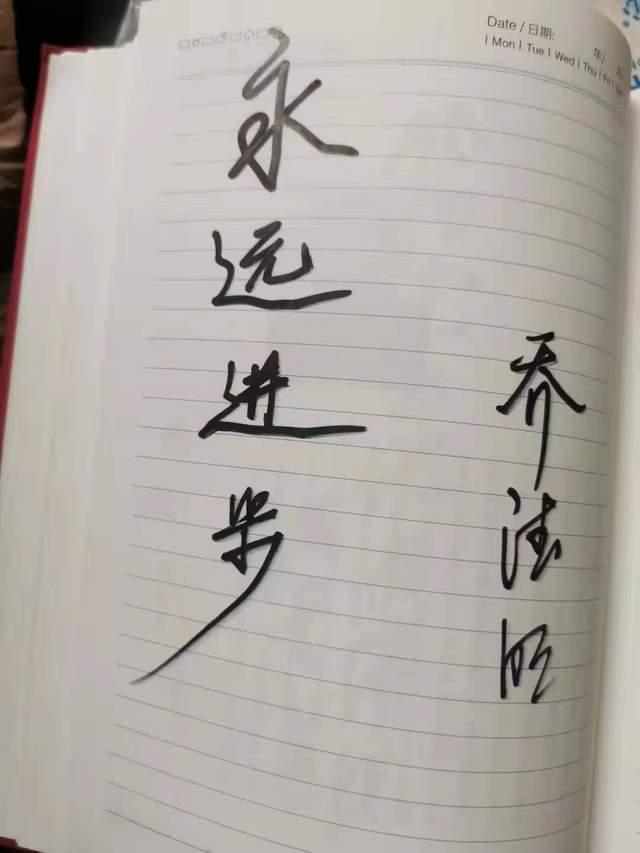 Date / 日期: 年/
| Mon | Tue | Wed | Thu | Fri |
永远进步
乔法